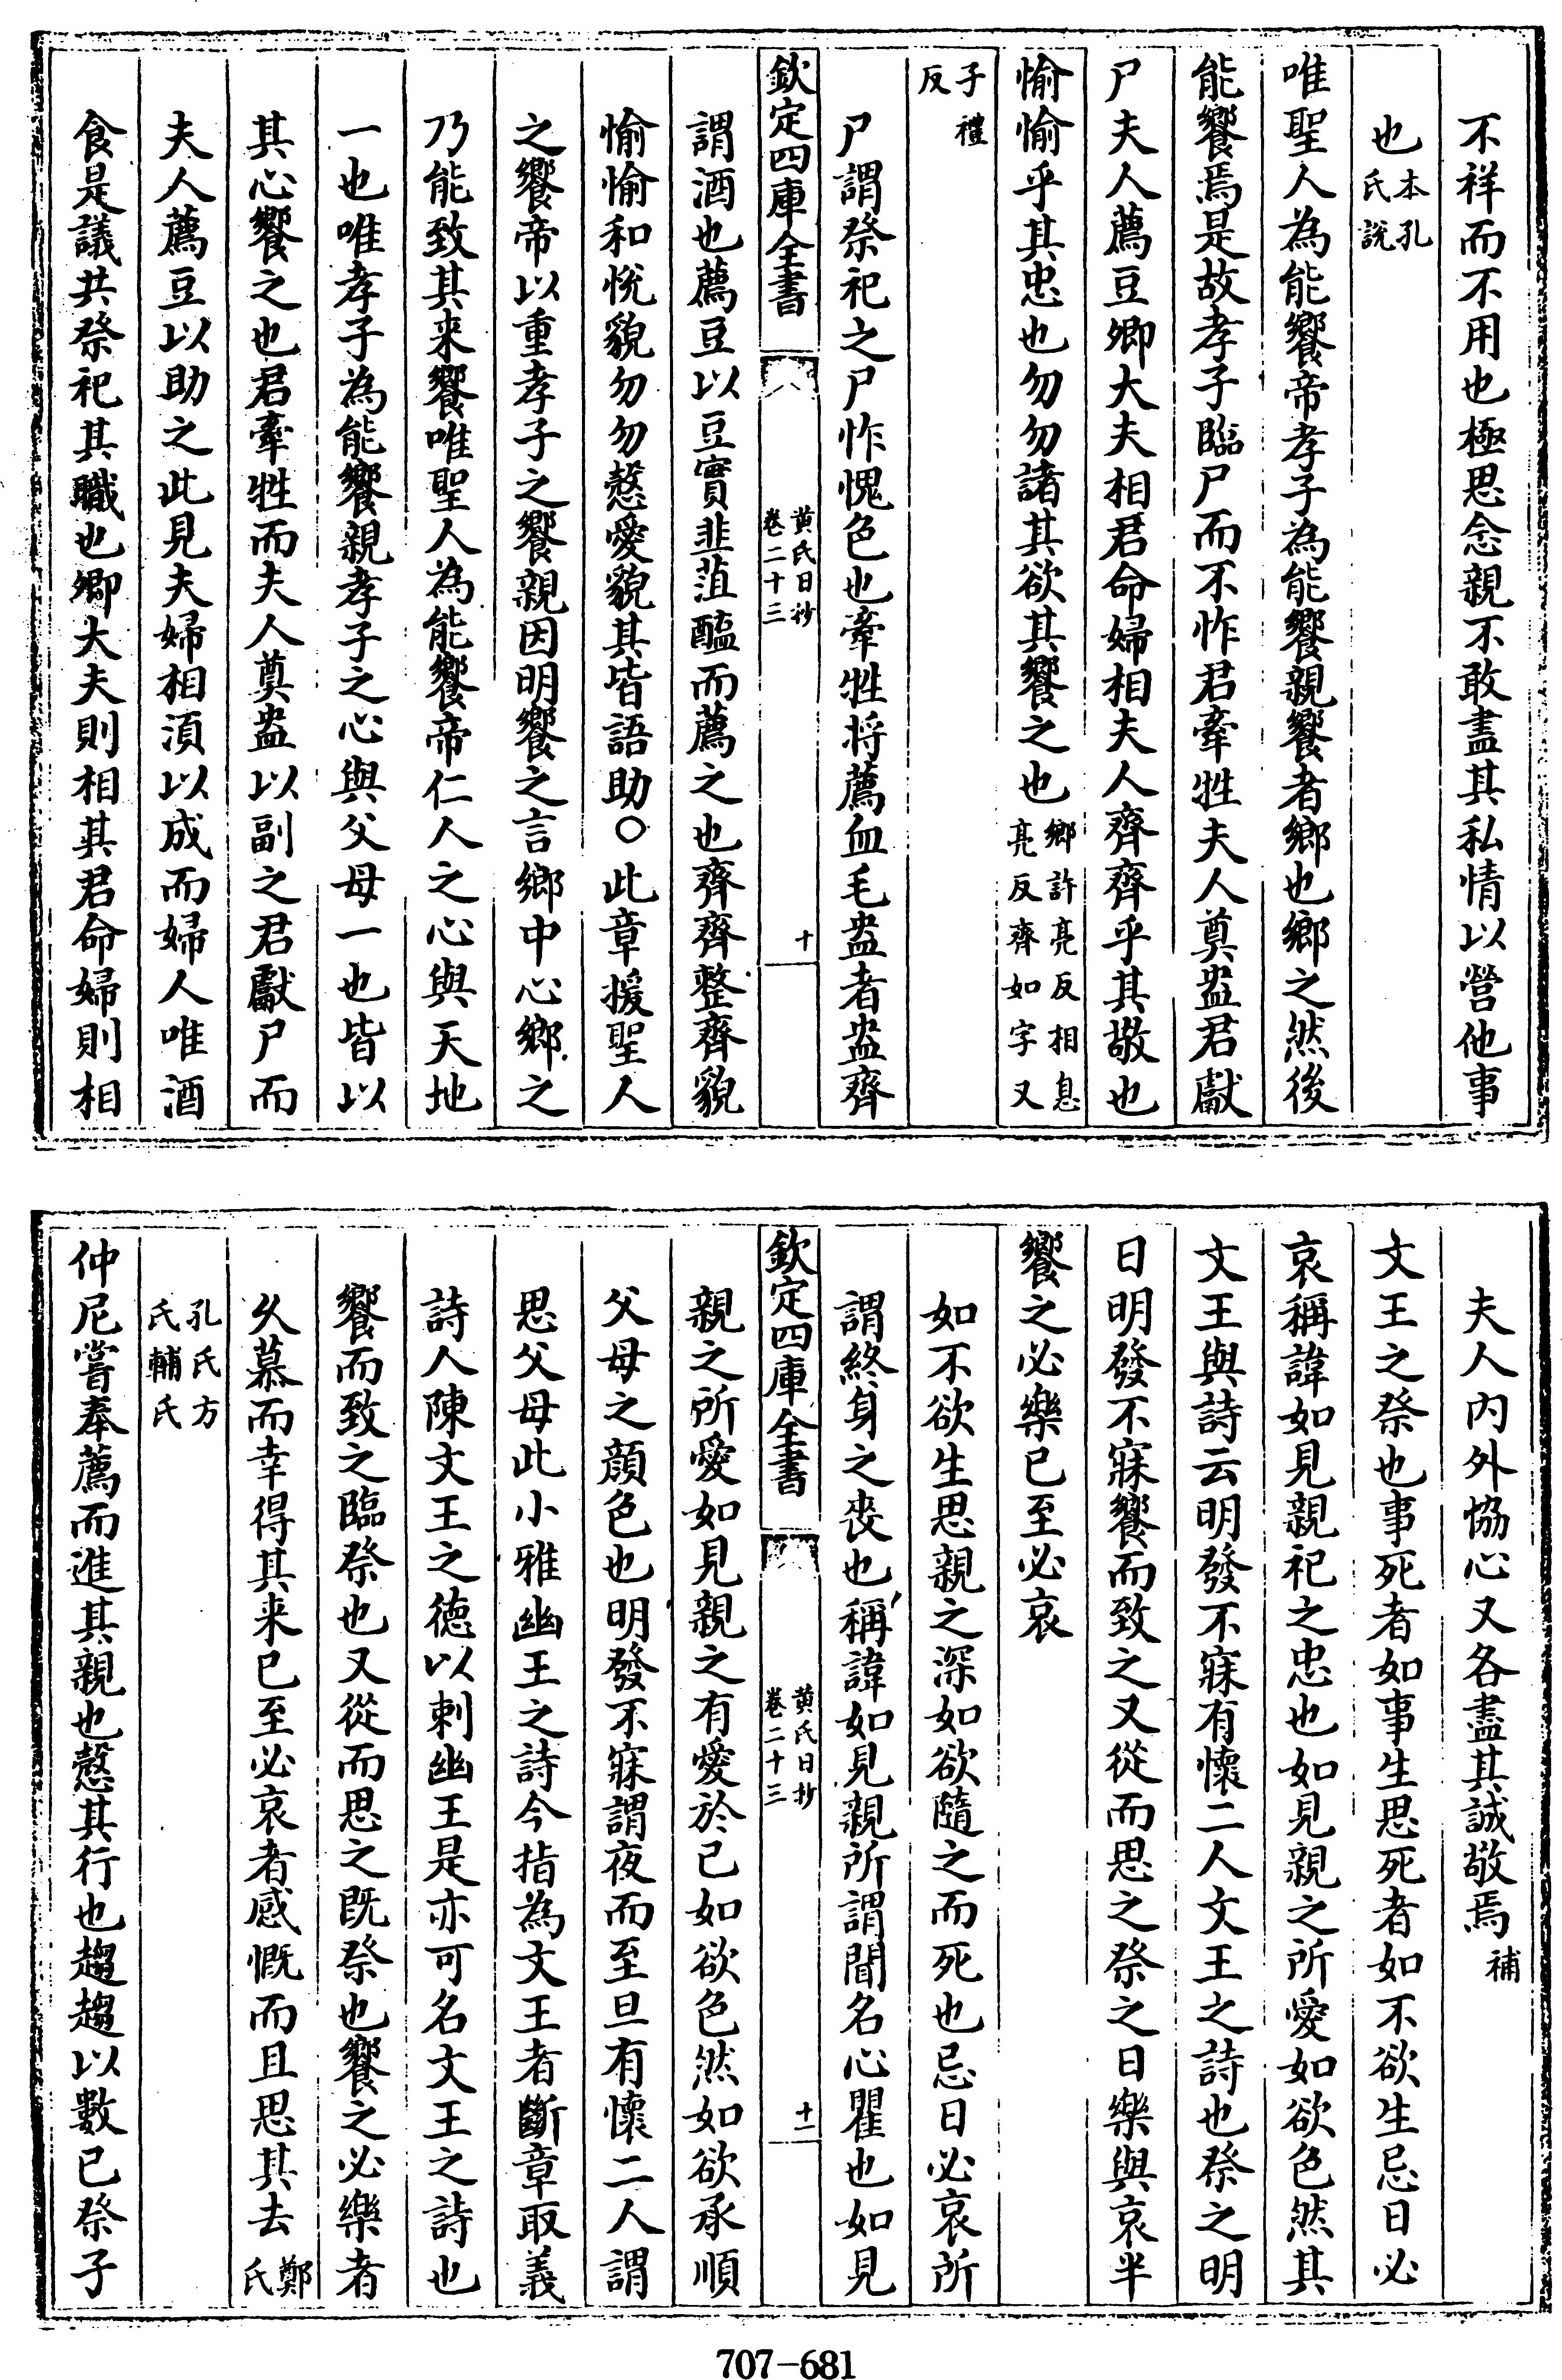 不祥而不用也極思念親不敢盡其私情以營他事
也本孔氏說
唯聖人為能饗帝孝子為能饗親饗者鄉也鄉之然後
能饗焉是故孝子臨尸而不怍君牽牲夫人奠盎君獻
尸夫人薦豆卿大夫相君命婦相夫人齊齊乎其敬也
愉愉乎其忠也勿勿諸其欲其饗之也鄉許亮反相息亮反齊如字又
子禮反
尸謂祭祀之尸怍愧色也牽牲将薦血毛盎者盎齊
欽定四庫全書
黄氏日抄
卷二十三
十
謂酒也薦豆以豆實韭菹醢而薦之也齊齊整齊貌
愉愉和悅貌勿勿慤愛貌其皆語助○此章援聖人
之饗帝以重孝子之饗親因明饗之言鄉中心鄉之
乃能致其来饗唯聖人為能饗帝仁人之心與天地
一也唯孝子為能饗親孝子之心與父母一也皆以
其心饗之也君牽牲而夫人奠盎以副之君獻尸而
夫人薦豆以助之此見夫婦相湏以成而婦人唯酒
食是議共祭祀其職也卿大夫則相其君命婦則相
夫人内外恊心又各盡其誠敬焉補
文王之祭也事死者如事生思死者如不欲生忌日必
哀稱諱如見親祀之忠也如見親之所愛如欲色然其
文王與詩云明發不寐有懷二人文王之詩也祭之明
日明發不寐饗而致之又從而思之祭之日樂與哀半
饗之必樂已至必哀
如不欲生思親之深如欲隨之而死也忌日必哀所
謂終身之喪也稱諱如見親所謂聞名心瞿也如見
欽定四庫全書
黄氏日抄
卷二十三
十一
親之所愛如見親之有愛於己如欲色然如欲承順
父母之顔色也明發不寐謂夜而至旦有懷二人謂
思父母此小雅幽王之詩今指為文王者斷章取義
詩人陳文王之德以刺幽王是亦可名文王之詩也
饗而致之臨祭也又從而思之既祭也饗之必樂者
乆慕而幸得其来已至必哀者感慨而且思其去鄭氏
孔氏方氏輔氏
仲尼嘗奉薦而進其親也慤其行也趨趨以數已祭子
707-681